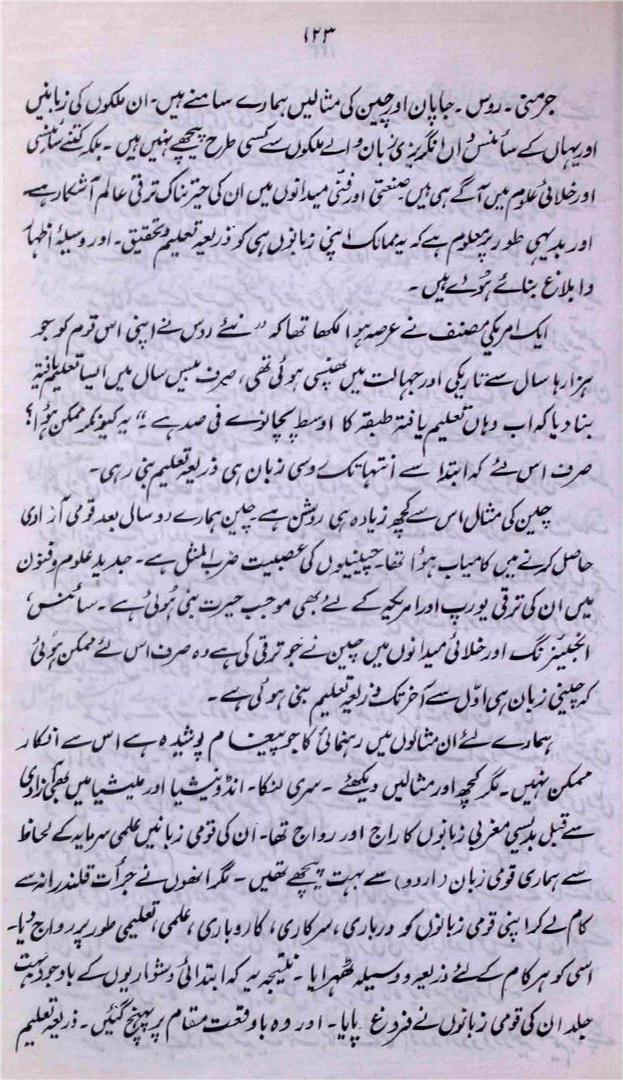 ۱۲۳
جرمنی۔ روس۔ جاپان اور چین کی مثالیں ہمارے سامنے ہیں۔ ان ملکوں کی زبانیں
اور یہاں کے سائنس داں انگریزی زبان والے ملکوں سے کسی طرح پیچھے نہیں ہیں۔ بلکہ کتنے سائنسی
اور خلائی علوم میں آگے ہی ہیں۔ صنعتی اور فنّی میدانوں میں ان کی حیرتناک ترقی عالم آشکار ہے۔
اور بدیہی طور پر معلوم ہے کہ یہ ممالک اپنی زبانوں ہی کو ذریعہ تعلیم و تحقیق۔ اور وسیلۂ اظہار
و ابلاغ بنائے ہوئے ہیں۔
ایک امریکی مصنف نے عرصہ ہوا لکھا تھا کہ "نئے روس نے اپنی اس قوم کو جو
ہزارہا سال سے تاریکی اور جہالت میں پھنسی ہوئی تھی، صرف بیس سال میں ایسا تعلیم یافتہ
بنا دیا کہ اب وہاں تعلیم یافتہ طبقہ کا اوسط پچانوے فی صد ہے۔" یہ کیونکر ممکن ہُوا؟
صرف اس لئے کہ ابتدا سے انتہا تک روسی زبان ہی ذریعہ تعلیم بنی رہی۔
چین کی مثال اس سے کچھ زیادہ ہی روشن ہے۔ چین ہمارے دو سال بعد قومی آزادی
حاصل کرنے میں کامیاب ہوُا تھا۔ چینیوں کی عصبیت ضرب المثل ہے۔ جدید علوم و فنون
میں ان کی ترقی یورپ اور امریکہ کے لئے بھی موجب حیرت بنی ہوئی ہے۔ سائنس،
انجینئرنگ اور خلائی میدانوں میں چین نے جو ترقی کی ہے وہ صرف اس لئے ممکن ہوئی
کہ چینی زبان ہی اوّل سے آخر تک ذریعہ تعلیم بنی ہوئی ہے۔
ہمارے لئے ان مثالوں میں رہنمائی کا جو پیغام پوشیدہ ہے اس سے انکار
ممکن نہیں۔ مگر کچھ اور مثالیں دیکھئے۔ سری لنکا۔ انڈونیشیا اور ملیشیا میں بھی آزادی
سے قبل بدیسی مغربی زبانوں کا راج اور رواج تھا۔ ان کی قومی زبانیں علمی سرمایہ کے لحاظ
سے ہماری قومی زبان (اردو) سے بہت پیچھے تھیں۔ مگر انھوں نے جرأت قلندرانہ سے
کام لے کر اپنی قومی زبانوں کو درباری، سرکاری، کاروباری، علمی، تعلیمی طور پر رواج دیا۔
اسی کو ہر کام کے لئے ذریعہ و وسیلہ ٹھہرایا۔ نتیجہ یہ کہ ابتدائی دشواریوں کے باوجود بہت
جلد ان کی قومی زبانوں نے فروغ پایا۔ اور وہ باوقعت مقام پر پہنچ گئیں۔ ذریعہ تعلیم